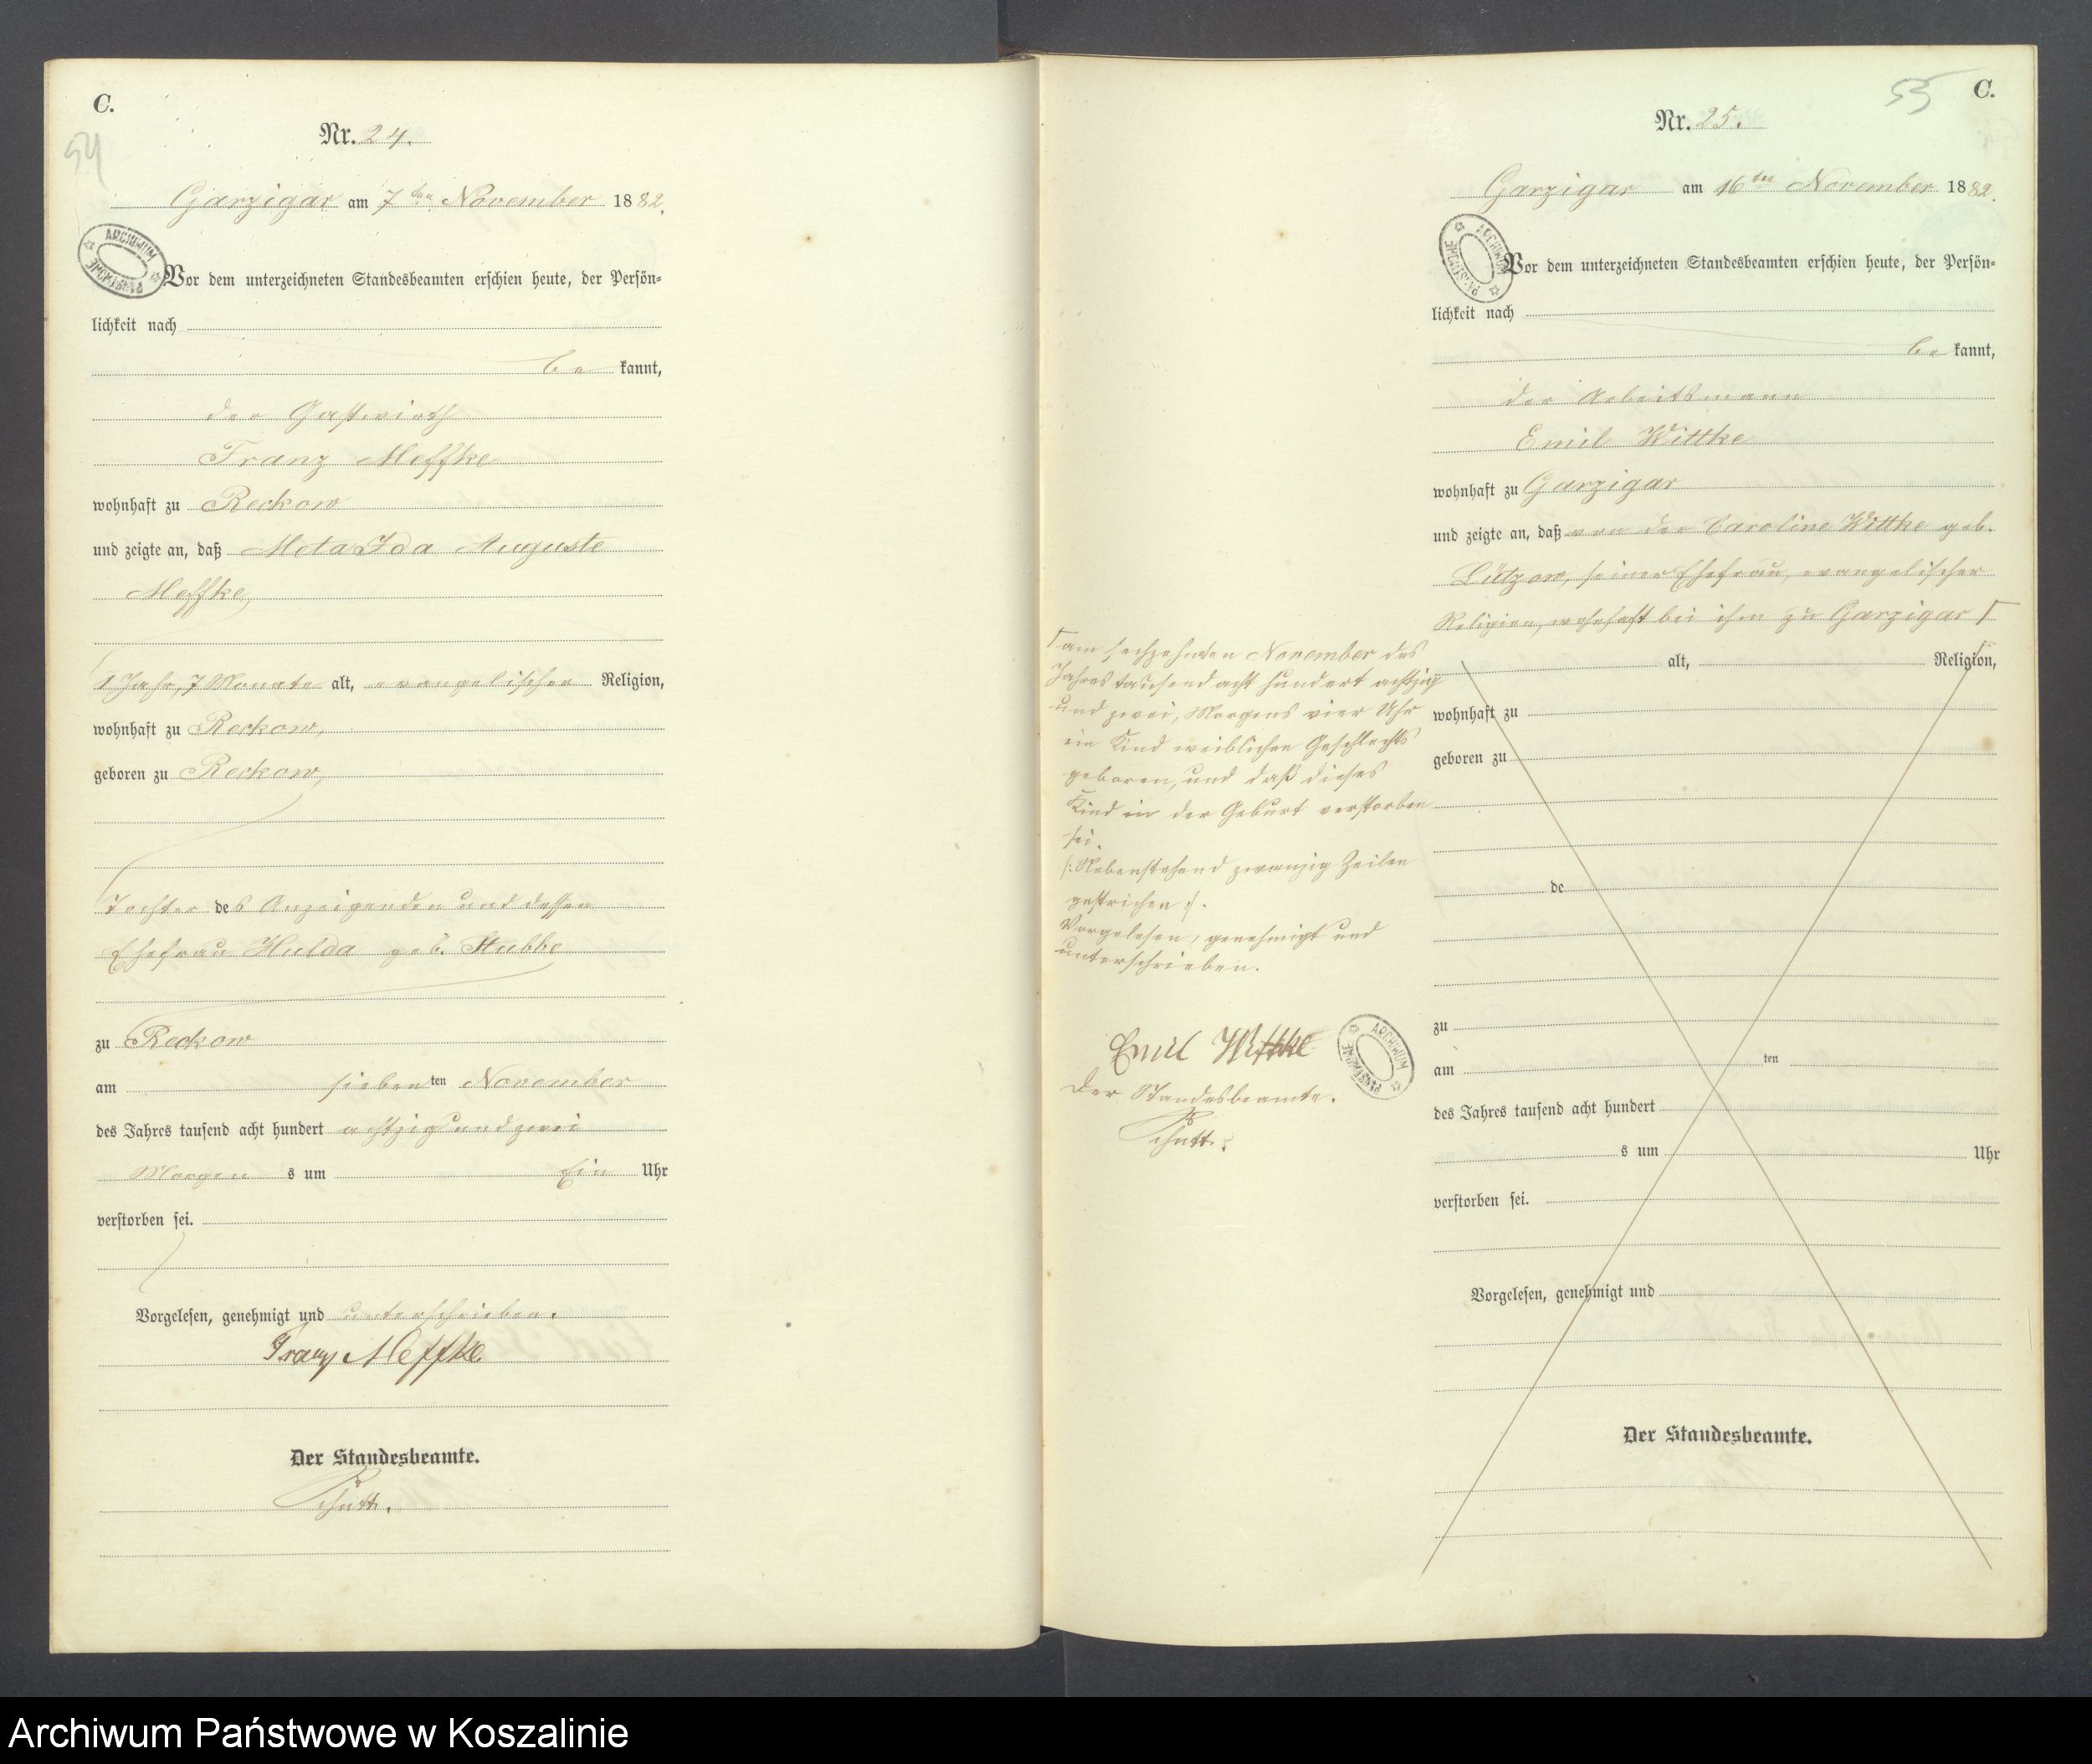 C.
54
Nr. 24.
Garzigar am 7ten November 1882.
ARCHIWUM PAŃSTWOWE
Vor dem unterzeichneten Standesbeamten erschien heute, der Persön-
lichkeit nach
be kannt,
der Gastwirth
Franz Meffke
wohnhaft zu Reckow
und zeigte an, daß Meta Ida Auguste
Meffke,
1 Jahr, 7 Monate alt, evangelischer Religion,
wohnhaft zu Reckow,
geboren zu Reckow,
Tochter des Anzeigenden und dessen
Ehefrau Hulda geb. Stubbe
zu Reckow
am sieben ten November
des Jahres tausend acht hundert achtzig und zwei
Morgen s um Ein Uhr
verstorben sei.
Vorgelesen, genehmigt und unterschrieben.
Franz Meffke
Der Standesbeamte.
Schutt.
55
C.
Nr. 25.
Garzigar am 16ten November 1882.
ARCHIWUM PAŃSTWOWE
Vor dem unterzeichneten Standesbeamten erschien heute, der Persön-
lichkeit nach
be kannt,
der Arbeitsmann
Emil Wittke
wohnhaft zu Garzigar
und zeigte an, daß von der Caroline Wittke geb.
Lützow, seiner Ehefrau, evangelischer
Religion, wohnhaft bei ihm zu Garzigar
am sechzehnten November des
Jahres tausend acht hundert achtzig
und zwei, Morgens vier Uhr
ein Kind weiblichen Geschlechts
geboren, und daß dieses
Kind in der Geburt verstorben
sei.
/: Nebenstehend zwanzig Zeilen
gestrichen :/.
Vorgelesen, genehmigt und
unterschrieben.
Emil Wittke
ARCHIWUM PAŃSTWOWE
Der Standesbeamte.
Schutt.
alt, Religion,
wohnhaft zu
geboren zu
de
zu
am ten
des Jahres tausend acht hundert
s um Uhr
verstorben sei.
Vorgelesen, genehmigt und
Der Standesbeamte.
Archiwum Państwowe w Koszalinie